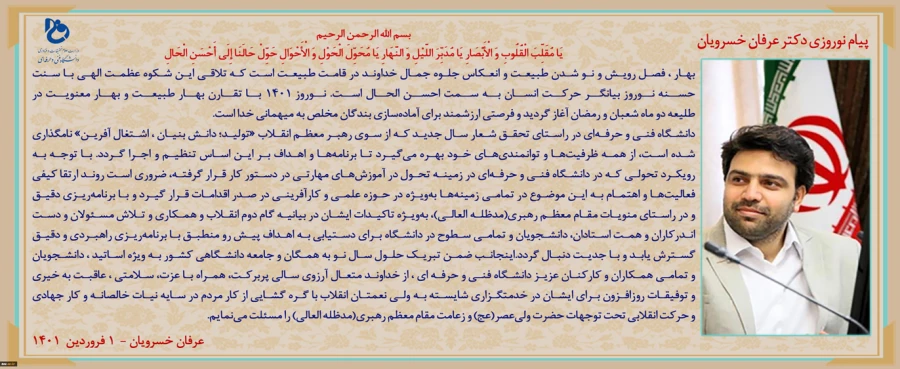 بسم الله الرحمن الرحیم
پیام نوروزی دکتر عرفان خسرویان
یَا مُقَلِّبَ الْقُلُوبِ وَ الْأَبْصَارِ یَا مُدَبِّرَ اللَّیْلِ وَ النَّهَارِ یَا مُحَوِّلَ الْحَوْلِ وَ الْأَحْوَالِ حَوِّلْ حَالَنَا إِلَى أَحْسَنِ الْحَالِ
بهار ، فصل رویش و نو شدن طبیعت و انعکاس جلوه جمال خداوند در قامت طبیعت است که تلاقی این شکوه عظمت الهی با سنت
حسنه نوروز بیانگر حرکت انسان به سمت احسن الحال است. نوروز ۱۴۰۱ با تقارن بهار طبیعت و بهار معنویت در
طلیعه دو ماه شعبان و رمضان آغاز گردید و فرصتی ارزشمند برای آماده‌سازی بندگان مخلص به میهمانی خدا است.
دانشگاه فنی و حرفه‌ای در راستای تحقق شعار سال جدید که از سوی رهبر معظم انقلاب «تولید؛ دانش بنیان ، اشتغال آفرین» نامگذاری
شده است، از همه ظرفیت‌ها و توانمندی‌های خود بهره می‌گیرد تا برنامه‌ها و اهداف بر این اساس تنظیم و اجرا گردد. با توجه به
رویکرد تحولی که در دانشگاه فنی و حرفه‌ای در زمینه تحول در آموزش‌های مهارتی در دستور کار قرار گرفته، ضروری است روند ارتقا کیفی
فعالیت‌ها و اهتمام به این موضوع در تمامی زمینه‌ها به‌ویژه در حوزه علمی و کارآفرینی در صدر اقدامات قرار گیرد و با برنامه‌ریزی دقیق
و در راستای منویات مقام معظم رهبری(مدظله العالی)، به‌ویژه تاکیدات ایشان در بیانیه گام دوم انقلاب و همکاری و تلاش مسئولان و دست
اندرکاران و همت استادان، دانشجویان و تمامی سطوح در دانشگاه برای دستیابی به اهداف پیش رو منطبق با برنامه‌ریزی راهبردی و دقیق
گسترش یابد و با جدیت دنبال گردد.اینجانب ضمن تبریک حلول سال نو به همگان و جامعه دانشگاهی کشور به ویژه اساتید ، دانشجویان
و تمامی همکاران و کارکنان عزیز دانشگاه فنی و حرفه ای ، از خداوند متعال آرزوی سالی پربرکت، همراه با عزت، سلامتی ، عاقبت به خیری
و توفیقات روزافزون برای ایشان در خدمتگزاری شایسته به ولی نعمتان انقلاب با گره گشایی از کار مردم در سایه نیات خالصانه و کار جهادی
و حرکت انقلابی تحت توجهات حضرت ولی‌عصر(عج) و زعامت مقام معظم رهبری(مدظله العالی) را مسئلت می‌نمایم.
عرفان خسرویان - ۱ فروردین ۱۴۰۱